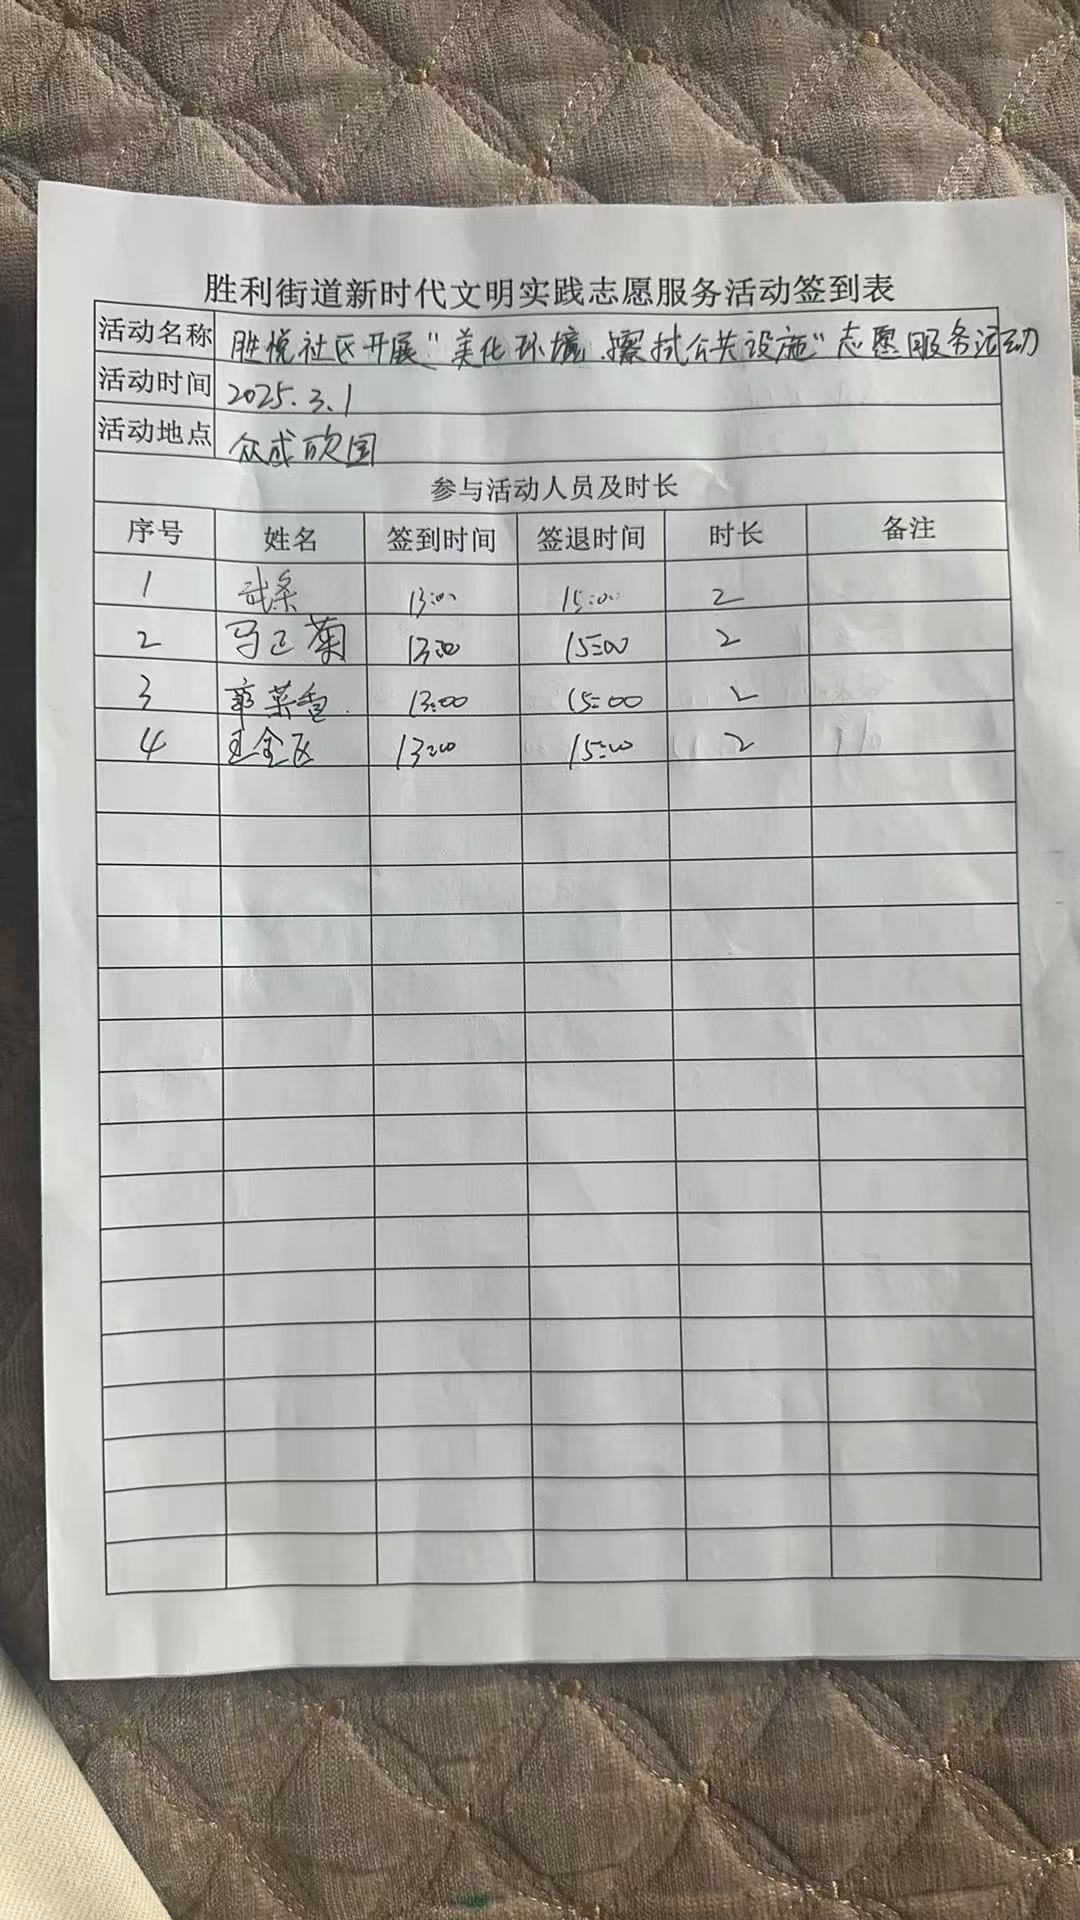 胜利街道新时代文明实践志愿服务活动签到表
活动名称 胜悦社区开展"美化环境、擦拭公共设施"志愿服务活动
活动时间 2025.3.1
活动地点 众成欣园
参与活动人员及时长
序号 姓名 签到时间 签退时间 时长 备注
1 武条 13:00 15:00 2
2 马卫菊 13:00 15:00 2
3 章菜香 13:00 15:00 2
4 王金区 13:00 15:00 2